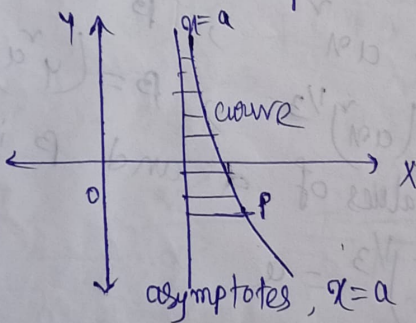 Y
x = a
curve
X
O
P
asymptotes, x = a